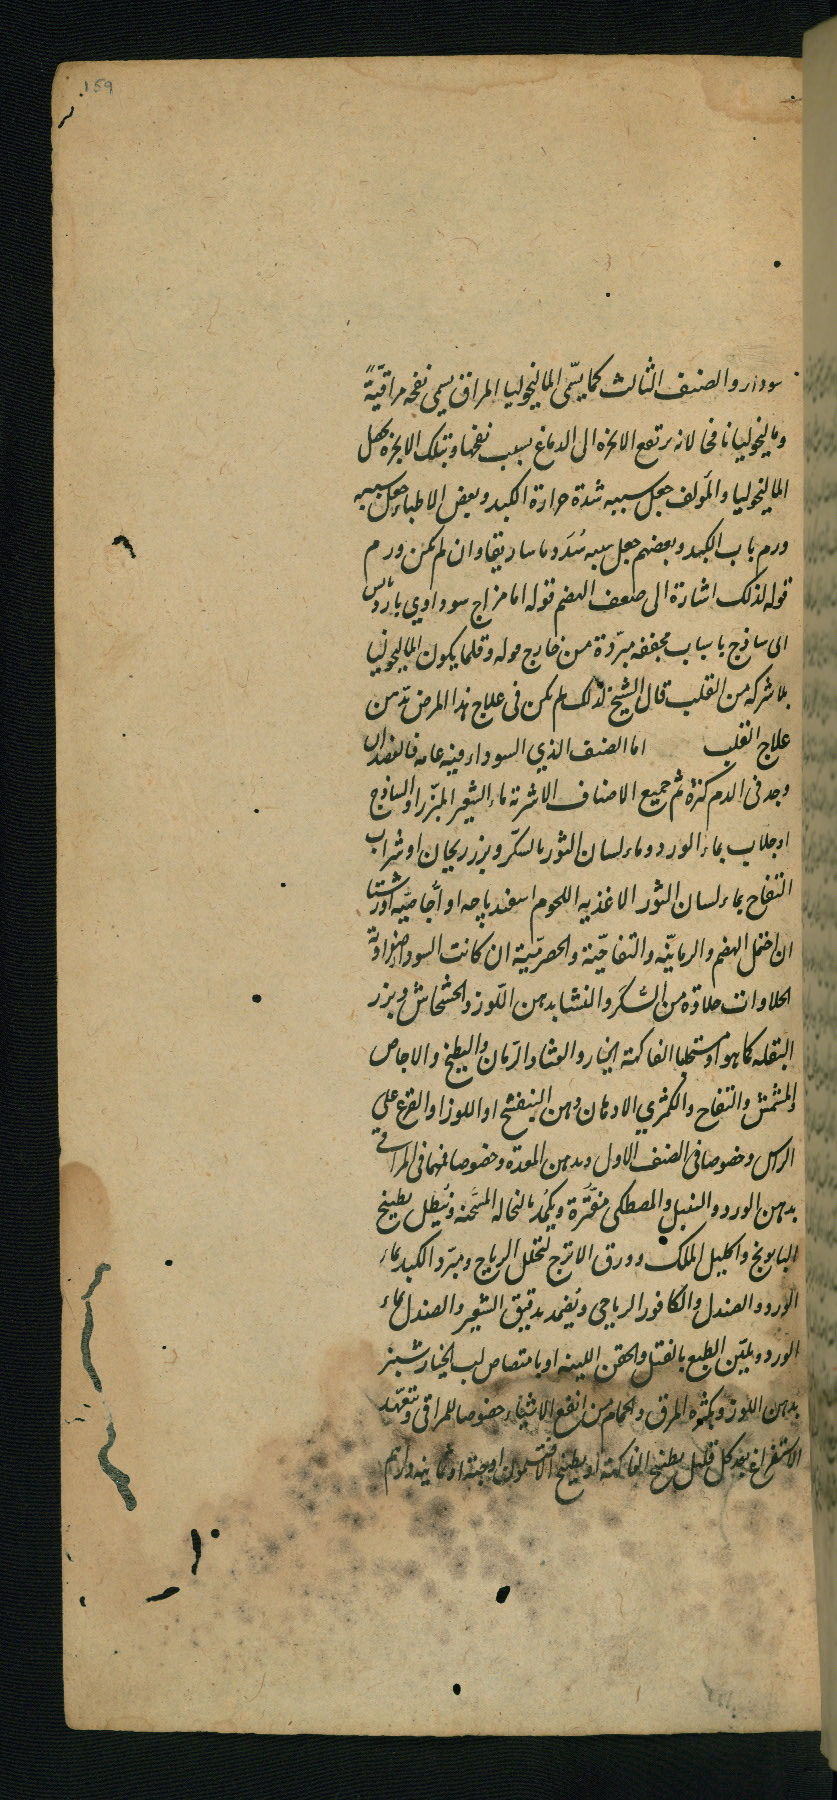 159
سوداء والصنف الثالث كما يسمّى الماليخوليا المراقى يسمى نفخه مراقيّةً
وماليخوليا نافخا لانه يرتفع الابخرة الى الدماغ بسبب نفخها وبتلك الابخرة يحصل
الماليخوليا والمؤلف جعل سببه شدة حرارة الكبد وبعض الاطباء جعل سببه
ورم باب الكبد وبعضهم جعل سببه سُدَد ماساريقا وان لم يكن ورم
قوله لذلك اشارة الى ضعف الهضم قوله اما مزاج سوداوي بارد يابس
الى ساذج باسباب مجففه مبرّدة من خارج قوله وقلما يكون الماليخوليا
بلا شركه من القلب قال الشيخ لذلك لم يكن فى علاج هذا المرض بدّ من
علاج القلب اما الصنف الذي السوداء فيه عامه فالفصد ان
وجد فى الدم كثرة ثم جميع الاصناف الاشربة ماء الشعير المبزّر او الساذج
او جلاب بماء الورد وماء لسان الثور بالسكّر وبزر ريحان او شراب
التفاح بماء لسان الثور الاغذيه اللحوم اسفيدباجه او اجّاصيّه او رشتا
ان احتمل الهضم والرمانيّه والتفاحيّة والحصرميّة ان كانت السوداء صفراوية
الحلاوات حلاوة من السُّكر والنشا بدهن اللّوز والخشخاش وبزر
البقله كما هو او مستحلبا الفاكهة الخيار والقثا والرّمان والبطيخ والاجاص
والمشمش والتفاح والكمثرى الادهان دهن البنفسج او اللوز او القرع على
الراس وخصوصا فى الصنف الاول ويدهن المعدة وخصوصا فمها فى المراقى
بدهن الورد والسنبل والمصطكى مفتّرة ويكمّد بالنخاله المسخّنه وينطل بطبيخ
البابونج واكليل الملك وورق الاترج لتحلل الرياح ويبرّد الكبد بماء
الورد والصندل والكافور الرياحى ويُضمد بدقيق الشعير والصندل بماء
الورد ويليّن الطبع بالفتل والحقن اللينه او بامتصاص لب الخيارشنبر
بدهن اللوز وكثرة المرق والحمام من انفع الاشياء خصوصا للمراقى ويتعهّد
الاستفراغ بعد كل قليل بطبيخ الفاكهة او بطبيخ الافتيمون او